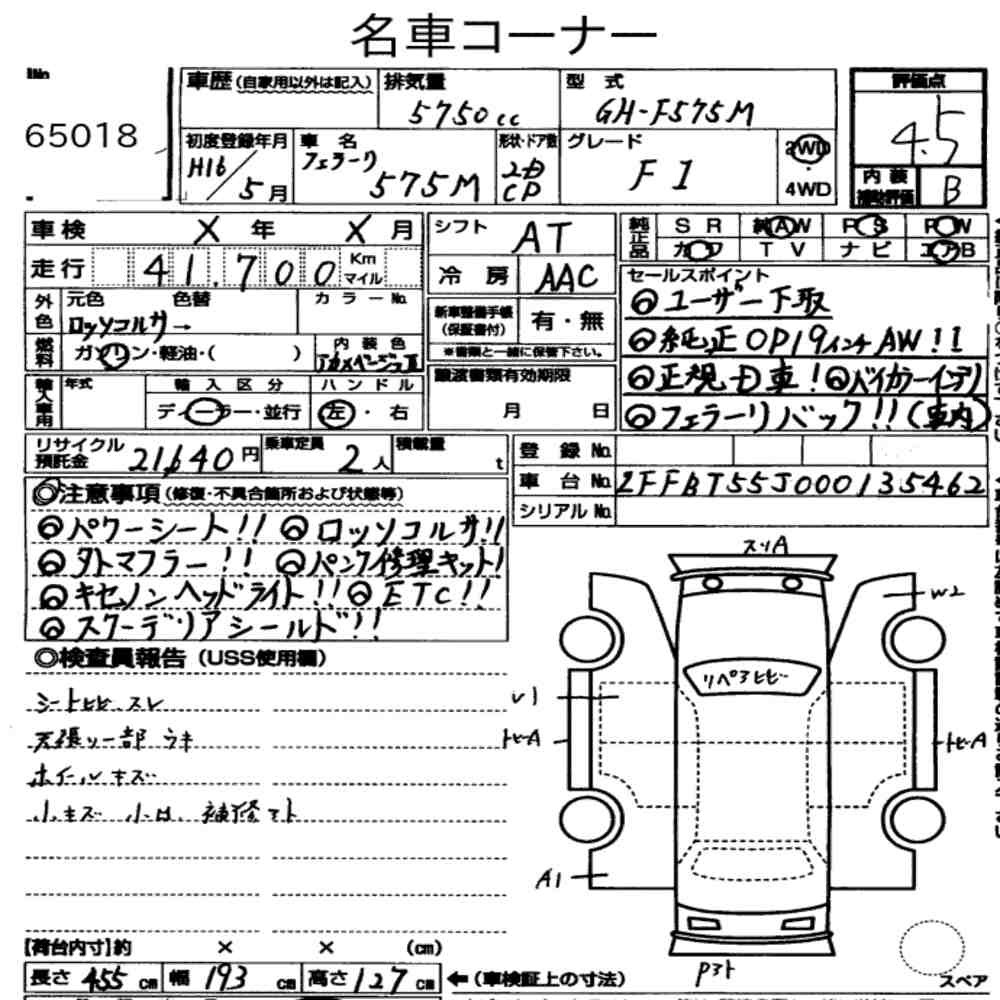 名車コーナー
No
65018
車歴 (自家用以外は記入) 排気量 5750cc 型式 GH-F575M 評価点 4.5
初度登録年月 H16/5月 車名 フェラーリ 575M 形状・ドア数 2D CP グレード F1 2WD 4WD
内装補助評価 B
車検 X年 X月 シフト AT 純正品 SR 純AW PS PW
走行 41,700 Km マイル 冷房 AAC カワ TV ナビ エアB
外色 元色 ロッソコルサ→ 色替 カラーNo.
セールスポイント
新車整備手帳 (保証書付) 有・無
※書類と一緒に保管下さい。
◎ユーザー下取
燃料 ガソリン・軽油・( ) 内装色
◎純正OP19インチAW!!
輸入車用 年式 輸入区分 ディーラー・並行 ハンドル 左・右
譲渡書類有効期限 月 日
◎正規D車! ◎バイカラーインテリ
◎フェラーリバック!!(車内)
リサイクル預託金 21,640円 乗車定員 2人 積載量 t
登録No.
車台No. ZFFBT55J000135462
シリアルNo.
◎注意事項 (修復・不具合箇所および状態等)
◎パワーシート!! ◎ロッソコルサ!!
◎タトマフラー!! ◎パンク修理キット!
◎キセノンヘッドライト!! ◎ETC!!
◎スクーデリアシールド!!
◎検査員報告 (USS使用欄)
シートヒビ スレ
天張り一部 ウキ
ホイールキズ
小キズ 小凹 補修マト
スリA
W2
リペアヒビ
U1
トビA
トビA
A1
Pアト
スペア
[荷台内寸]約 × × (cm)
長さ 455 cm 幅 193 cm 高さ 127 cm ←(車検証上の寸法)